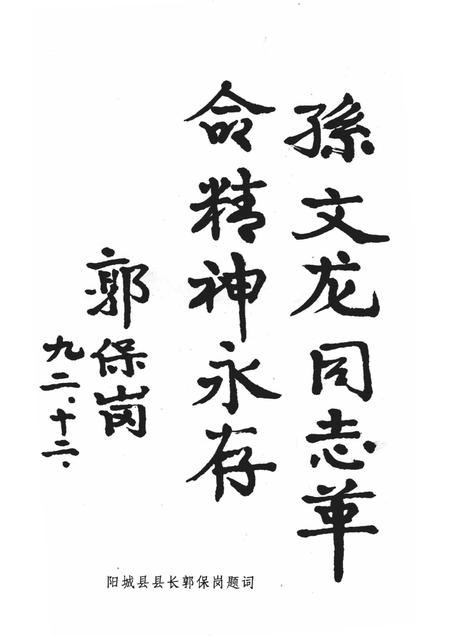 孫文龙同志革
命精神永存
郭保岗
九二.十二.
阳城县县长郭保岗题词